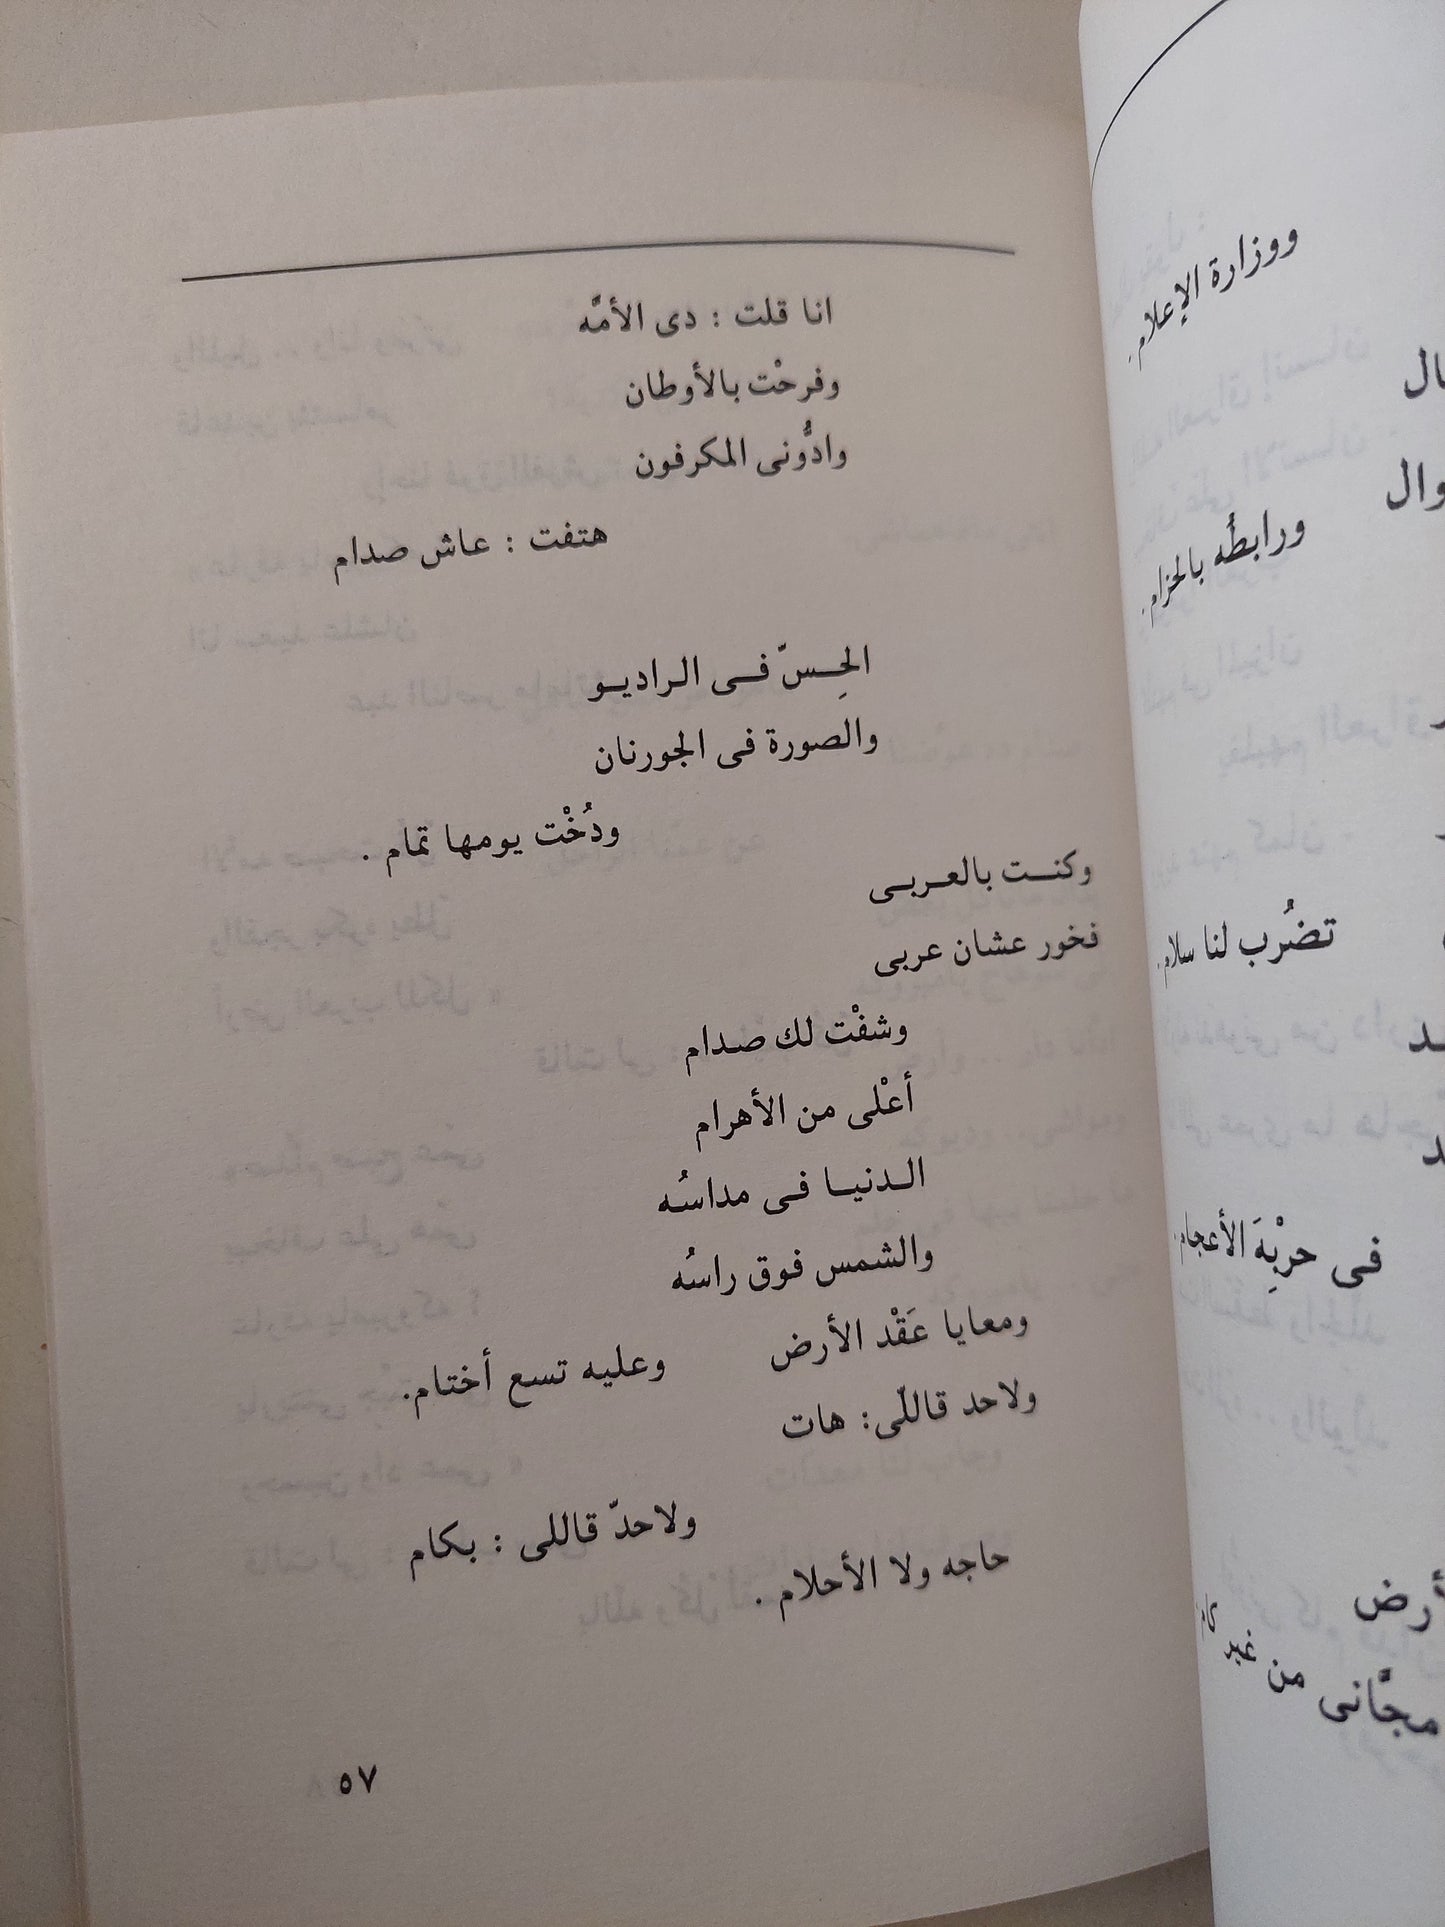 ووزارة الإعلام.
ورابطُه بالحزام.
تضرُب لنا سلام.
فى حربِةَ الأعجام.
أرض
مجَّانى من غير كام
انا قلت : دى الأمَّه
وفرحْت بالأوطان
وادُّونى المكرفون
هتفت : عاش صدام
الحِسّ فى الراديو
والصورة فى الجورنان
ودُخْت يومها تمام .
وكنت بالعربى
فخور عشان عربى
وشفْت لك صدام
أعْلى من الأهرام
الدنيا فى مداسُه
والشمس فوق راسُه
ومعايا عَقْد الأرض وعليه تسع أختام.
ولاحد قاللّى: هات
ولاحدّ قاللى : بكام
حاجه ولا الأحلام .
٥٧